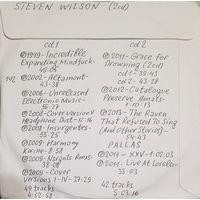 STEVEN WILSON (2cd)
cd1
1999-Incredible
Expanding Mindfuck-
2002-Altamont-
43:38
2006-Unreleased
Electronic Music-
2008-Cover version V
Headphone Dust-12:16
2008-Insurgentes-
55:25
2009-Harmony
Korine-8:58
2009-Nsrgnts Rmxs-
38:08
2009-Cover
Versions I-IV-37:29
49 tracks
4:52:58
cd 2
2011-Grace for
Drowning (2cd)
cd1-39:43
cd2-43:28
2012-Catalogue
Preserve Amass-
1:10:13
2013-The Raven
That Refused To Sing
(And Other Stories)-
54:43
PALLAS
2011-XXV-1:02:03
2011-Live At Lorelei-
42 tracks
5:03:16